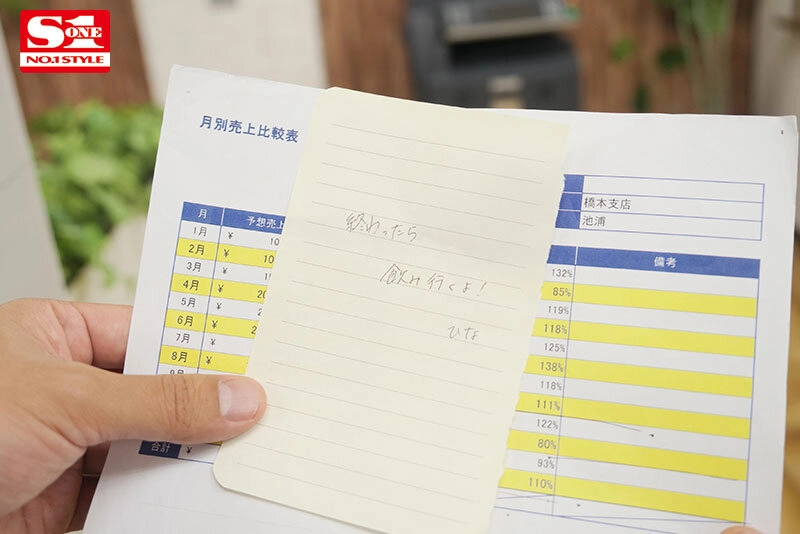 S1 ONE
NO.1 STYLE
月別売上比較表
橋本支店
池浦
月 予想売上 備考
1月 ¥ 10 132%
2月 ¥ 10 85%
3月 ¥ 1 119%
4月 ¥ 20 118%
5月 ¥ 2 125%
6月 ¥ 2 138%
7月 ¥ 118%
8月 ¥ 111%
122%
80%
93%
110%
合計 ¥
終わったら
飲み行くよ!
ひな